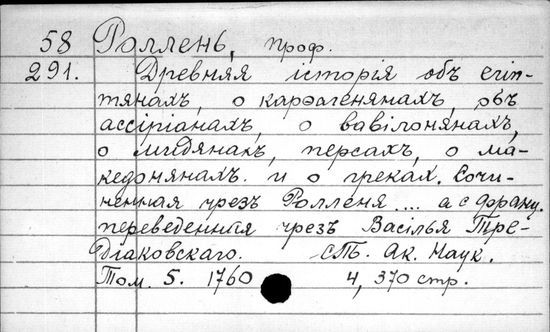 58 Роллень, проф.
291. Древняя історія объ егіп-
тянахъ, о карѳагенянахъ, объ
ассіріанахъ, о вавілонянахъ,
о мидянахъ, персахъ, о ма-
кедонянахъ и о грекахъ. Сочи-
ненная чрезъ Ролленя ... а с франц.
переведенная чрезъ Васілья Тре-
діаковскаго. СПб. Ак. Наук.
Том. 5. 1760 4, 370 стр.